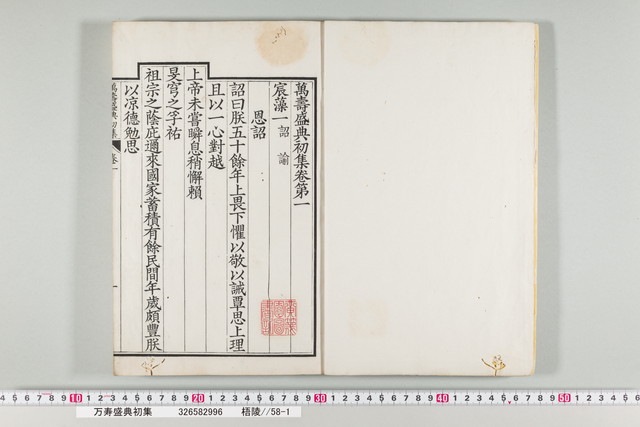 萬壽盛典初集卷第一
宸藻一 詔 諭
恩詔
詔曰朕五十餘年上畏下懼以敬以誠覃思上理
且以一心對越
上帝未嘗瞬息稍懈賴
旻穹之孚祐
祖宗之蔭庇邇來國家蓄積有餘民間年歲頗豐朕
以凉德勉思
萬壽盛典初集 卷一 一
10 20 30 40 50
万寿盛典初集 326582996 梧陵//58-1